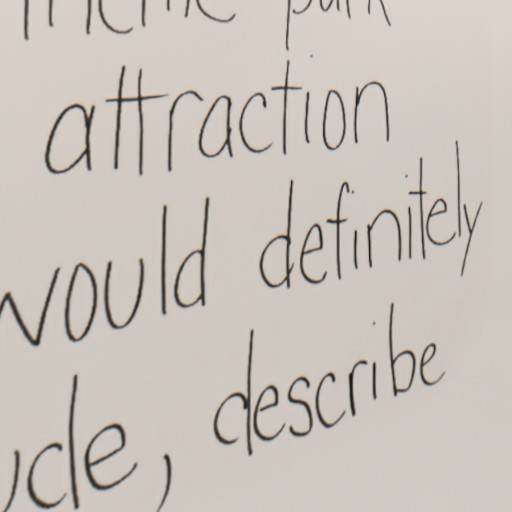 park
attraction
would definitely
, describe